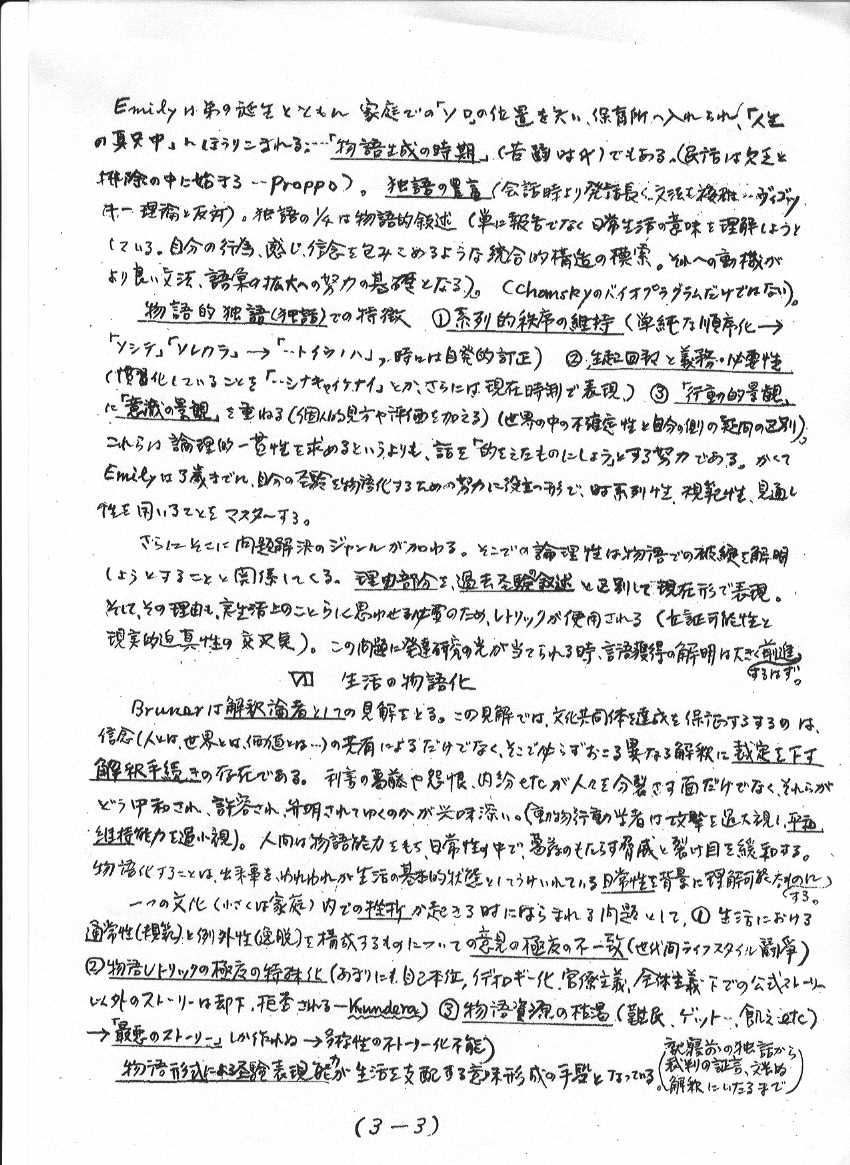 Emilyは弟の誕生とともに 家庭での「ソロ」の位置を失い、保育所へ入れられ、「人生
の真只中」にほうりこまれる…「物語生成の時期」(苦闘は才)でもある。(民話は欠乏と
排除の中に始まる…Proppo)。独語の豊富(会話時より発話長く、文法も複雑…ヴィゴツ
キー理論と反対)。独語の1/4は物語的叙述(単に報告でなく日常生活の意味を理解しようと
している。自分の行為、感じ、信念を包みこめるような統合的構造の模索。それへの動機が
より良い文法、語彙の拡大への努力の基礎となる)。(Chomskyのバイオプラグラムだけではない)。
物語的独語(独話)での特徴 ①系列的秩序の維持(単純な順序化→
「ソシテ」「ソレカラ」→「…トイウノハ」、時には自発的訂正) ②生起回数と義務・必要性
(慣習化していることを「…シナキャイケナイ」とか、さらには現在時制で表現) ③「行動的景観」
に「意識の景観」を重ねる(個人的見方や評価を加える)(世界の中の不確定性と自分の側の疑問の区別)。
これらは論理的一貫性を求めるというよりも、話を「的をえたものにしよう」とする努力である。かくて
Emilyは3歳までに、自分の経験を物語化するための努力に役立つ形で、時系列性、規範性、見通し
性を用いることをマスターする。
さらにそこに問題解決のジャンルが加わる。そこでの論理性は物語での破綻を解明
しようとすることと関係してくる。理由部分を、過去経験の叙述と区別して現在形で表現。
そして、その理由も、実生活上のことらしく思わせる必要のため、レトリックが使用される(立証可能性と
現実的迫真性の交叉点)。この問題に発達研究の光が当てられる時、言語獲得の解明は大きく前進
するはず。
Ⅶ 生活の物語化
Brunerは解釈論者としての見解をとる。この見解では、文化共同体を達成を保証するするのは、
信念(人とは、世界とは、価値とは…)の共有によるだけでなく、そこで必らずおこる異なる解釈に裁定を下す
解釈手続きの存在である。利害の葛藤や怨恨、内紛etcが人々を分裂さす面だけでなく、それらが
どう中和され、許容され、弁明されてゆくのかが興味深い。(動物行動学者は攻撃を過大視し、平和
維持能力を過小視)。人間は物語能力をもち、日常性の中で、葛藤のもたらす脅威と裂け目を緩和する。
物語化することは、出来事を、われわれが生活の基本的状態としてうけいれている日常性を背景に理解可能なものに
する。
一つの文化(小さくは家庭)内での挫折が起きる時にはらまれる問題として、① 生活における
通常性(規範)と例外性(逸脱)を構成するものについての意見の極度の不一致(世代間ライフスタイル闘争)
②物語レトリックの極度の特殊化(あまりにも自己本位、イデオロギー化、官僚主義、全体主義下での公式ストーリー
以外のストーリーは却下、拒否される—Kundera) ③物語資源の枯渇(難民、ゲットー、飢えetc)
→「最悪のストーリー」しか作れぬ→多様性のストーリー化不能)
物語形式による経験表現能力が生活を支配する意味形成の手段となっている。(就寝前の独話から
裁判の証言、文学の
解釈にいたるまで)
(3-3)